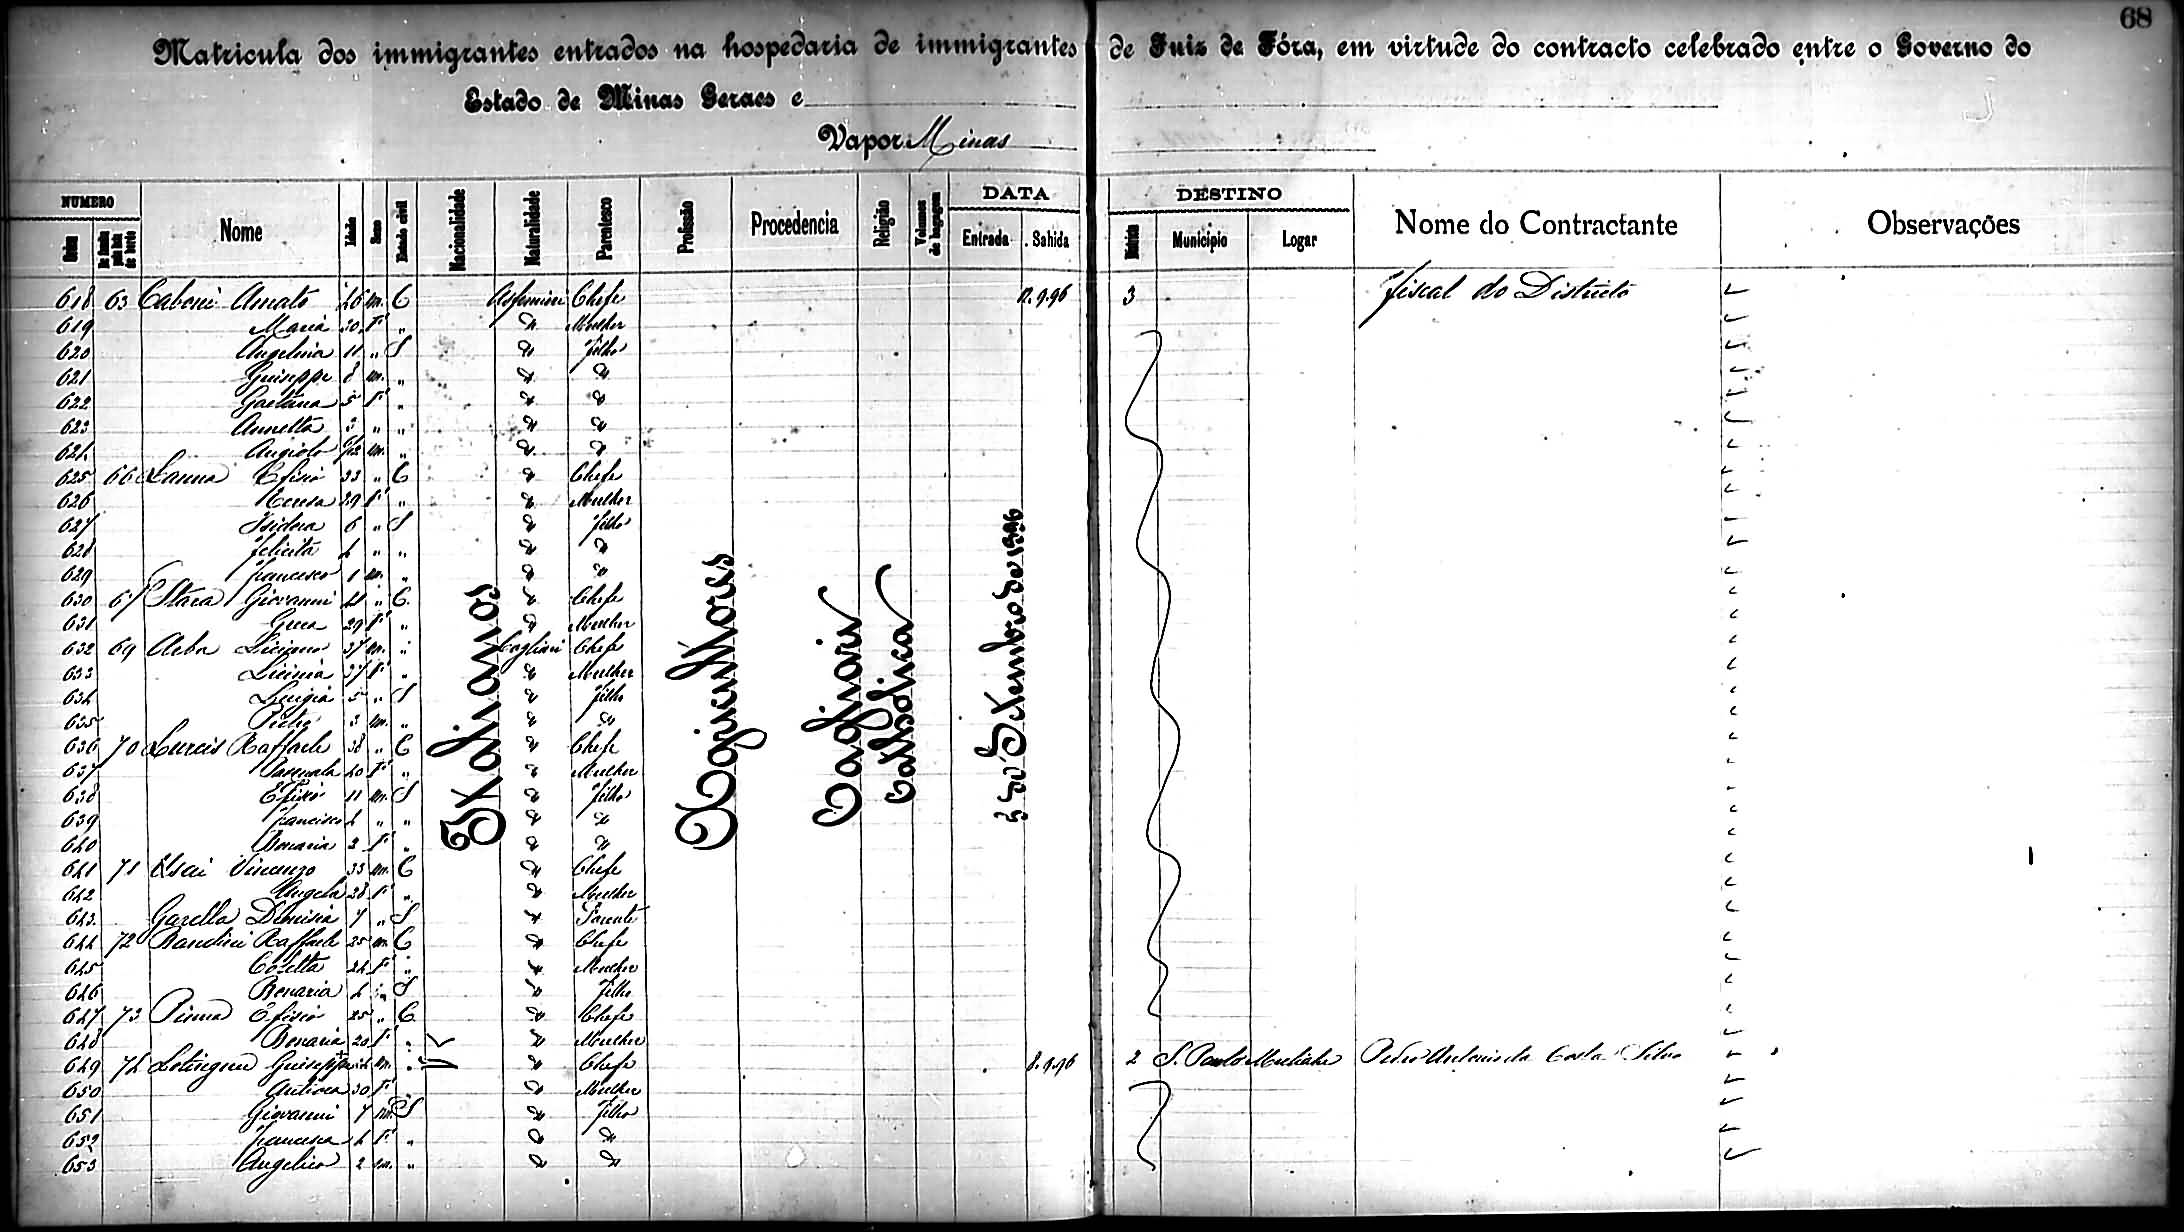 68
Matricula dos immigrantes entrados na hospedaria de immigrantes de Juiz de Fóra, em virtude do contracto celebrado entre o Governo do
Estado de Minas Geraes e
Vapor Minas
NUMERO DATA DESTINO
Ordem Nome Idade Sexo Estado civil Nacionalidade Naturalidade Parentesco Profissão Procedencia Religião Volumes de bagagem Entrada Sahida Districto Municipio Logar Nome do Contractante Observações
Italianos
Agricultores
Cagliari
Catholica
5 de Setembro de 1896
618 63 Caboni Amato 26 m. C Chefe 9.96 3 Fiscal do Districto
619 Maria 30 F " " Mulher
620 Angelina 11 " S " Filho
621 Guiseppe 8 m. " " "
622 Gaetana 5 F " " "
623 Annetta 3 " " " "
624 Angiolo m. " " "
625 66 Efisio 33 " C " Chefe
626 Teresa 29 F " " Mulher
627 Isidora 6 " S " Filho
628 Felicita 4 " " " "
629 Francesco 1 m. " " "
630 67 Stara Giovanni " C. " Chefe
631 Greca 29 F " " Mulher
632 69 Arba 37 m. " Cagliari Chefe
633 37 F " " Mulher
634 Luigia 5 " S " Filho
635 Pietro 3 m. " " "
636 70 Raffaele 38 " C " Chefe
637 40 F " " Mulher
638 Efisio 11 m. S " Filho
639 Francisco 4 " " " "
640 Benaria 2 F " " "
641 71 Vincenzo 33 m. C " Chefe
642 Angela 28 F " " Mulher
643 Garella 7 " S " Parente
644 72 Raffaele 25 m. C " Chefe
645 24 F " " Mulher
646 Benaria 4 " S " Filho
647 73 Pinna Efisio 25 " C " Chefe
648 Benaria 20 F " " Mulher
649 74 Guiseppe m. " " Chefe 8.9.96 2 S. Paulo Muriahe Pedro Antonio da Costa Silva
650 30 F " " Mulher
651 Giovanni 7 m. S " Filho
652 Francesca 4 F " " "
653 Angelico 2 m. " " "